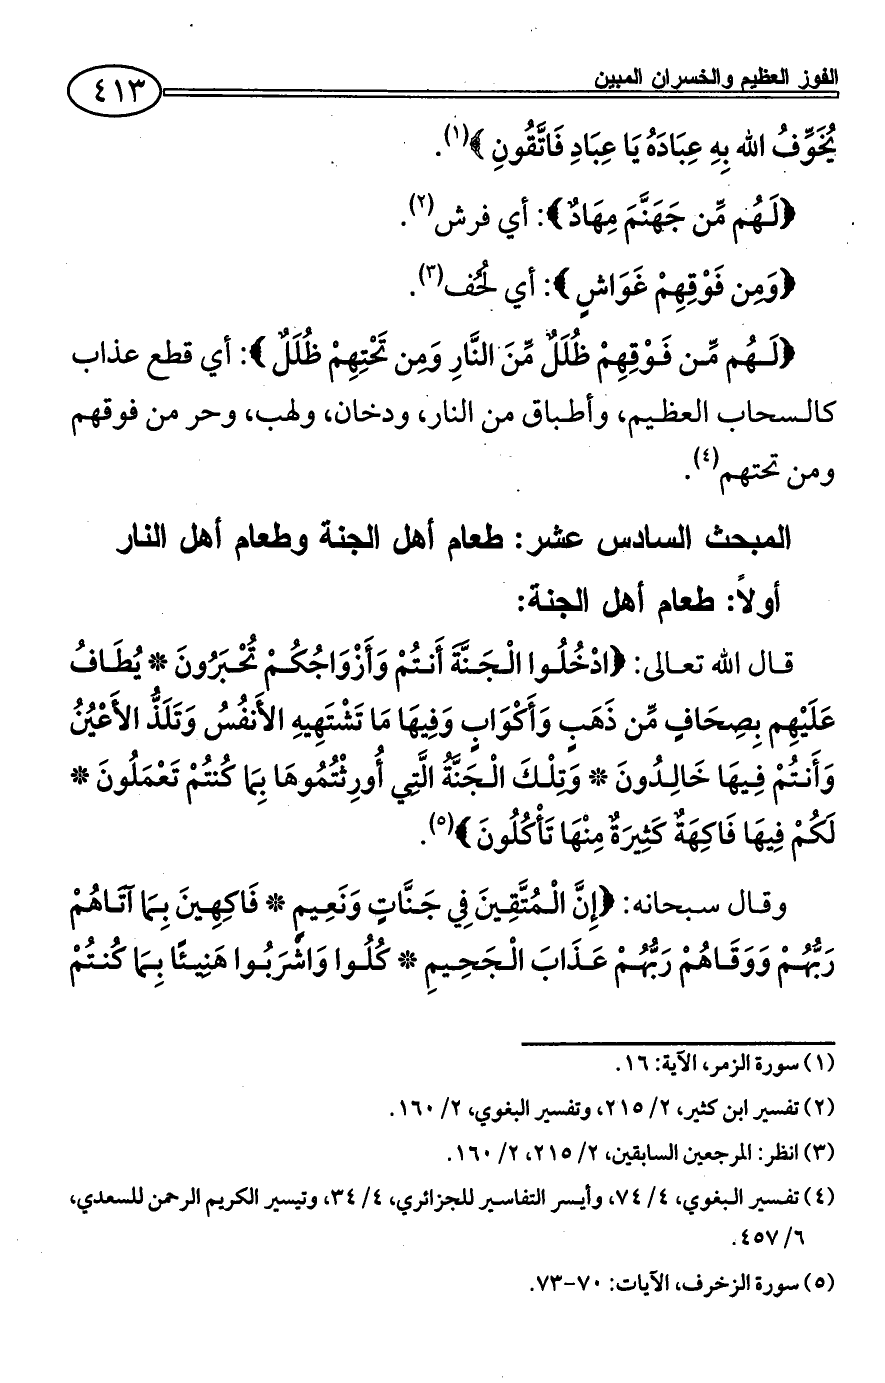 الفوز العظيم والخسران المبين
٤١٣
يُخَوِّفُ الله بِهِ عِبَادَهُ يَا عِبَادِ فَاتَّقُونِ﴾(١).
﴿لَهُم مِّن جَهَنَّمَ مِهَادٌ﴾: أي فرش(٢).
﴿وَمِن فَوْقِهِمْ غَوَاشٍ﴾: أي لُحُف(٣).
﴿لَهُم مِّن فَوْقِهِمْ ظُلَلٌ مِّنَ النَّارِ وَمِن تَحْتِهِمْ ظُلَلٌ﴾: أي قطع عذاب
كالسحاب العظيم، وأطباق من النار، ودخان، ولهب، وحر من فوقهم
ومن تحتهم(٤).
المبحث السادس عشر: طعام أهل الجنة وطعام أهل النار
أولاً: طعام أهل الجنة:
قال الله تعالى: ﴿ادْخُلُوا الْجَنَّةَ أَنتُمْ وَأَزْوَاجُكُمْ تُحْبَرُونَ * يُطَافُ
عَلَيْهِم بِصِحَافٍ مِّن ذَهَبٍ وَأَكْوَابٍ وَفِيهَا مَا تَشْتَهِيهِ الأَنفُسُ وَتَلَذُّ الأَعْيُنُ
وَأَنتُمْ فِيهَا خَالِدُونَ * وَتِلْكَ الْجَنَّةُ الَّتِي أُورِثْتُمُوهَا بِمَا كُنتُمْ تَعْمَلُونَ *
لَكُمْ فِيهَا فَاكِهَةٌ كَثِيرَةٌ مِنْهَا تَأْكُلُونَ﴾(٥).
وقال سبحانه: ﴿إِنَّ الْمُتَّقِينَ فِي جَنَّاتٍ وَنَعِيمٍ * فَاكِهِينَ بِمَا آتَاهُمْ
رَبُّهُمْ وَوَقَاهُمْ رَبُّهُمْ عَذَابَ الْجَحِيمِ * كُلُوا وَاشْرَبُوا هَنِيئًا بِمَا كُنتُمْ
(١) سورة الزمر، الآية: ١٦.
(٢) تفسير ابن كثير، ٢/ ٢١٥، وتفسير البغوي، ٢/ ١٦٠.
(٣) انظر: المرجعين السابقين، ٢/ ٢١٥، ٢/ ١٦٠.
(٤) تفسير البغوي، ٤/ ٧٤، وأيسر التفاسير للجزائري، ٤/ ٣٤، وتيسير الكريم الرحمن للسعدي،
٦/ ٤٥٧.
(٥) سورة الزخرف، الآيات: ٧٠-٧٣.